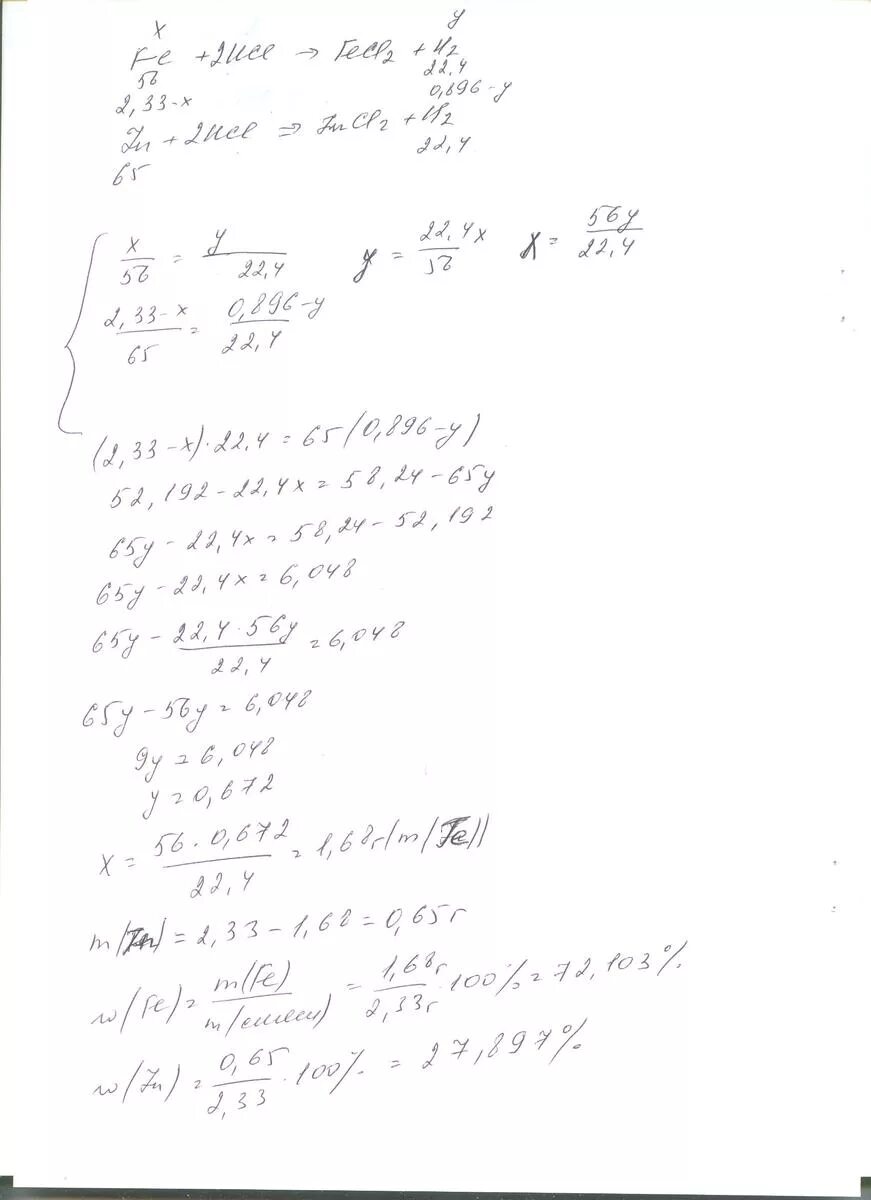 x y
Fe + 2HCl → FeCl2 + H2
56 22,4
2,33-x 0,896-y
Zn + 2HCl ⇒ ZnCl2 + H2
65 22,4
x/56 = y/22,4 y = 22,4x/56 x = 56y/22,4
2,33-x/65 = 0,896-y/22,4
(2,33-x)·22,4 = 65(0,896-y)
52,192-22,4x = 58,24-65y
65y-22,4x = 58,24-52,192
65y-22,4x = 6,048
65y - 22,4·56y/22,4 = 6,048
65y-56y = 6,048
9y = 6,048
y = 0,672
x = 56·0,672/22,4 = 1,68г(m(Fe))
m(Zn) = 2,33-1,68 = 0,65г
w(Fe) = m(Fe)/m(смеси) = 1,68г/2,33г·100% = 72,103%
w(Zn) = 0,65/2,33·100% = 27,897%